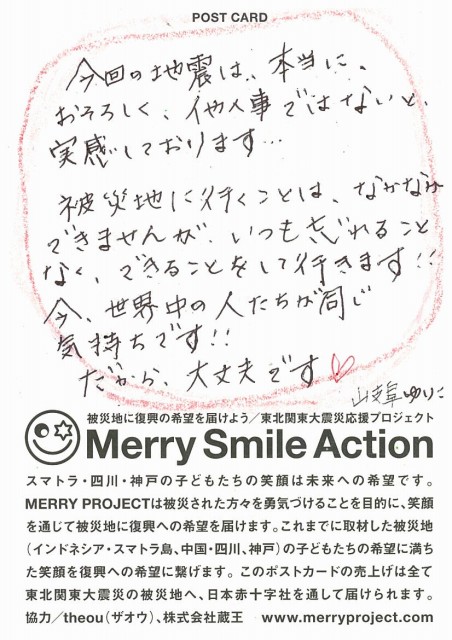 POST CARD
今回の地震は、本当に、
おそろしく、他人事ではないと、
実感しております…
被災地に行くことは、なかなか
できませんが、いつも忘れること
なく、できることをして行きます!!
今、世界中の人たちが同じ
気持ちです!!
だから、大丈夫です♡
ゆりこ
被災地に復興の希望を届けよう/東北関東大震災応援プロジェクト
Merry Smile Action
スマトラ・四川・神戸の子どもたちの笑顔は未来への希望です。
MERRY PROJECTは被災された方々を勇気づけることを目的に、笑顔
を通じて被災地に復興への希望を届けます。これまでに取材した被災地
(インドネシア・スマトラ島、中国・四川、神戸)の子どもたちの希望に満ち
た笑顔を復興への希望に繋げます。このポストカードの売上げは全て
東北関東大震災の被災地へ、日本赤十字社を通して届けられます。
協力/theou(ザオウ)、株式会社蔵王 www.merryproject.com